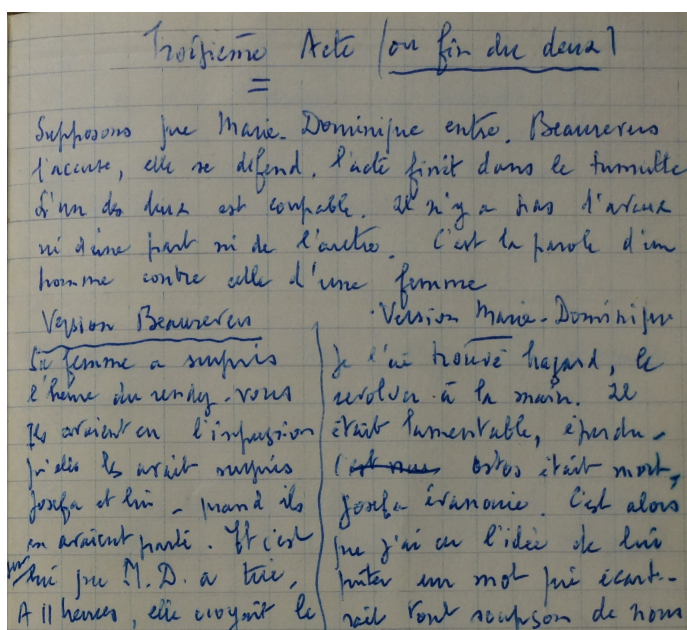 Troisième Acte (ou fin du deux)
Supposons que Marie-Dominique entre. Beaurevers
l'accuse, elle se défend. L'acte finit dans le tumulte
L'un des deux est coupable. Il n'y a pas d'aveux
ni d'une part ni de l'autre. C'est la parole d'un
homme contre celle d'une femme
Version Beaurevers
Sa femme a surpris
l'heure du rendez-vous
Ils avaient eu l'impression
qu'elle les avait surpris
Josefa et lui - quand ils
en avaient parlé. Et c'est
sur lui que M.D. a tiré,
A 11 heures, elle croyait le
Version Marie-Dominique
Je l'ai trouvé hagard, le
revolver à la main. Il
était lamentable, éperdu -
était mort,
Josefa évanouie. C'est alors
que j'ai eu l'idée de lui
dicter un mot qui écarte-
rait tout soupçon de nous